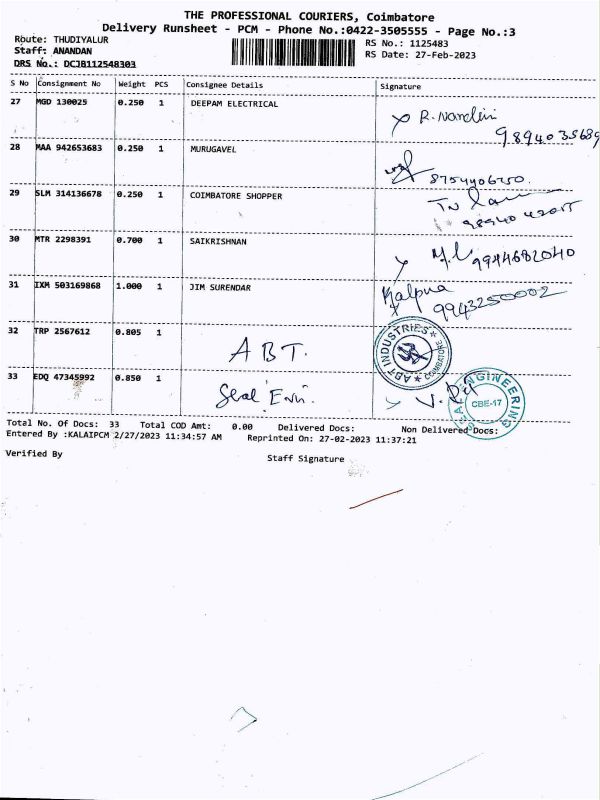 THE PROFESSIONAL COURIERS, Coimbatore
Delivery Runsheet - PCM - Phone No.:0422-3505555 - Page No.:3
Route: THUDIYALUR
RS No.: 1125483
Staff: ANANDAN
RS Date: 27-Feb-2023
DRS No.: DCJB112548303
S No Consignment No Weight PCS Consignee Details Signature
27 MGD 130025 0.250 1 DEEPAM ELECTRICAL R. Nandini
9894035689
28 MAA 942653683 0.250 1 MURUGAVEL
8754406750
29 SLM 314136678 0.250 1 COIMBATORE SHOPPER
30 MTR 2298391 0.700 1 SAIKRISHNAN 9944682040
31 IXM 503169868 1.000 1 JIM SURENDAR Kalpna
9943250002
32 TRP 2567612 0.805 1 ABT. ABT INDUSTRIES COIMBATORE
33 EDQ 47345992 0.850 1 ENGINEERING CBE-17
Total No. Of Docs: 33 Total COD Amt: 0.00 Delivered Docs: Non Delivered Docs:
Entered By :KALAIPCM 2/27/2023 11:34:57 AM Reprinted On: 27-02-2023 11:37:21
Verified By Staff Signature